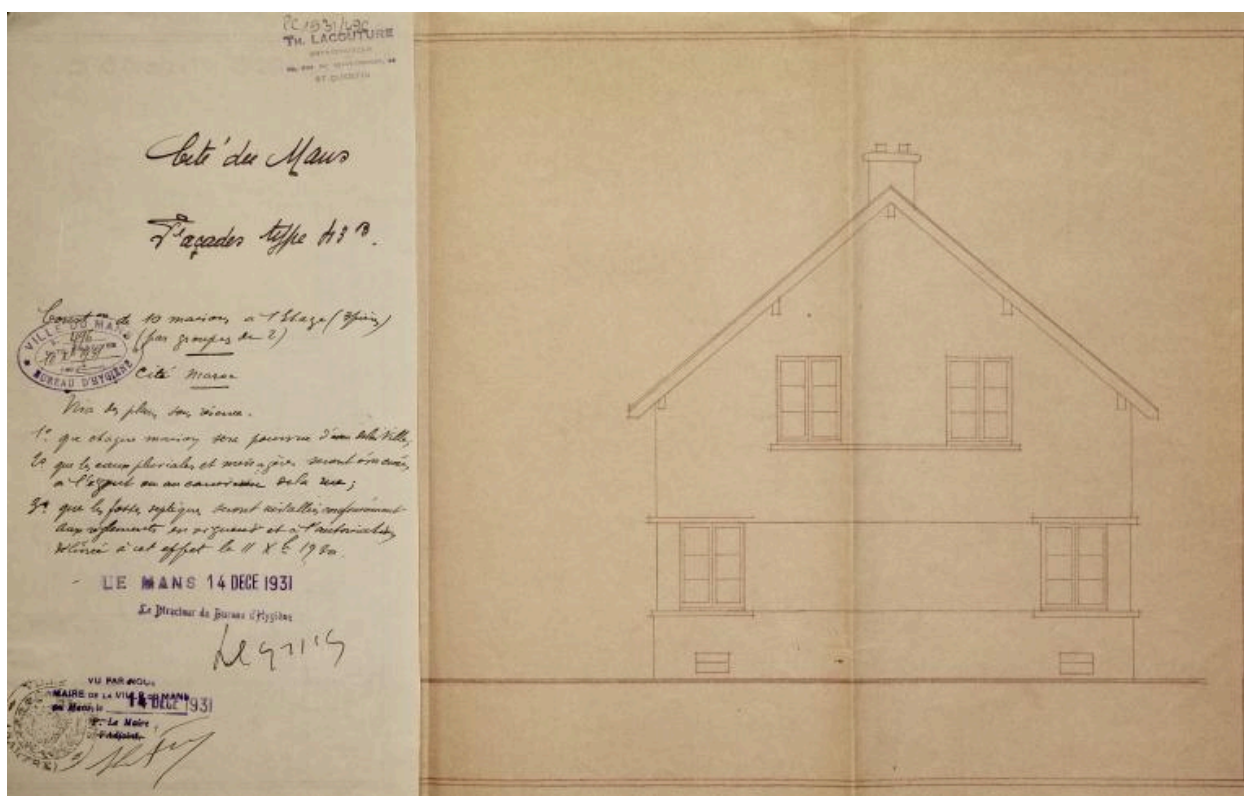 PC 1931/496
TH. LACOUTURE
ST QUENTIN
Cité du Mans
Façades type H3 B.
Conston de 10 maisons à l'Etage (3 pièces)
(par groupes de 2)
VILLE DU MANS
496
BUREAU D'HYGIÈNE
Cité Maroc
Visa des plans sous réserve.
1º que chaque maison sera pourvue d'eau de la Ville,
2º que les eaux pluviales et ménagères seront évacuées
à l'égout ou au caniveau de la rue;
3º que les fosses septiques seront installées conformément
aux règlements en vigueur et à l'autorisation
délivrée à cet effet le 11 Xbre 1930.
LE MANS 14 DECE 1931
Le Directeur du Bureau d'Hygiène
VU PAR NOUS
MAIRE DE LA VILLE DU MANS
au Mans, le 14 DECE 1931
P. Le Maire
l'Adjoint,